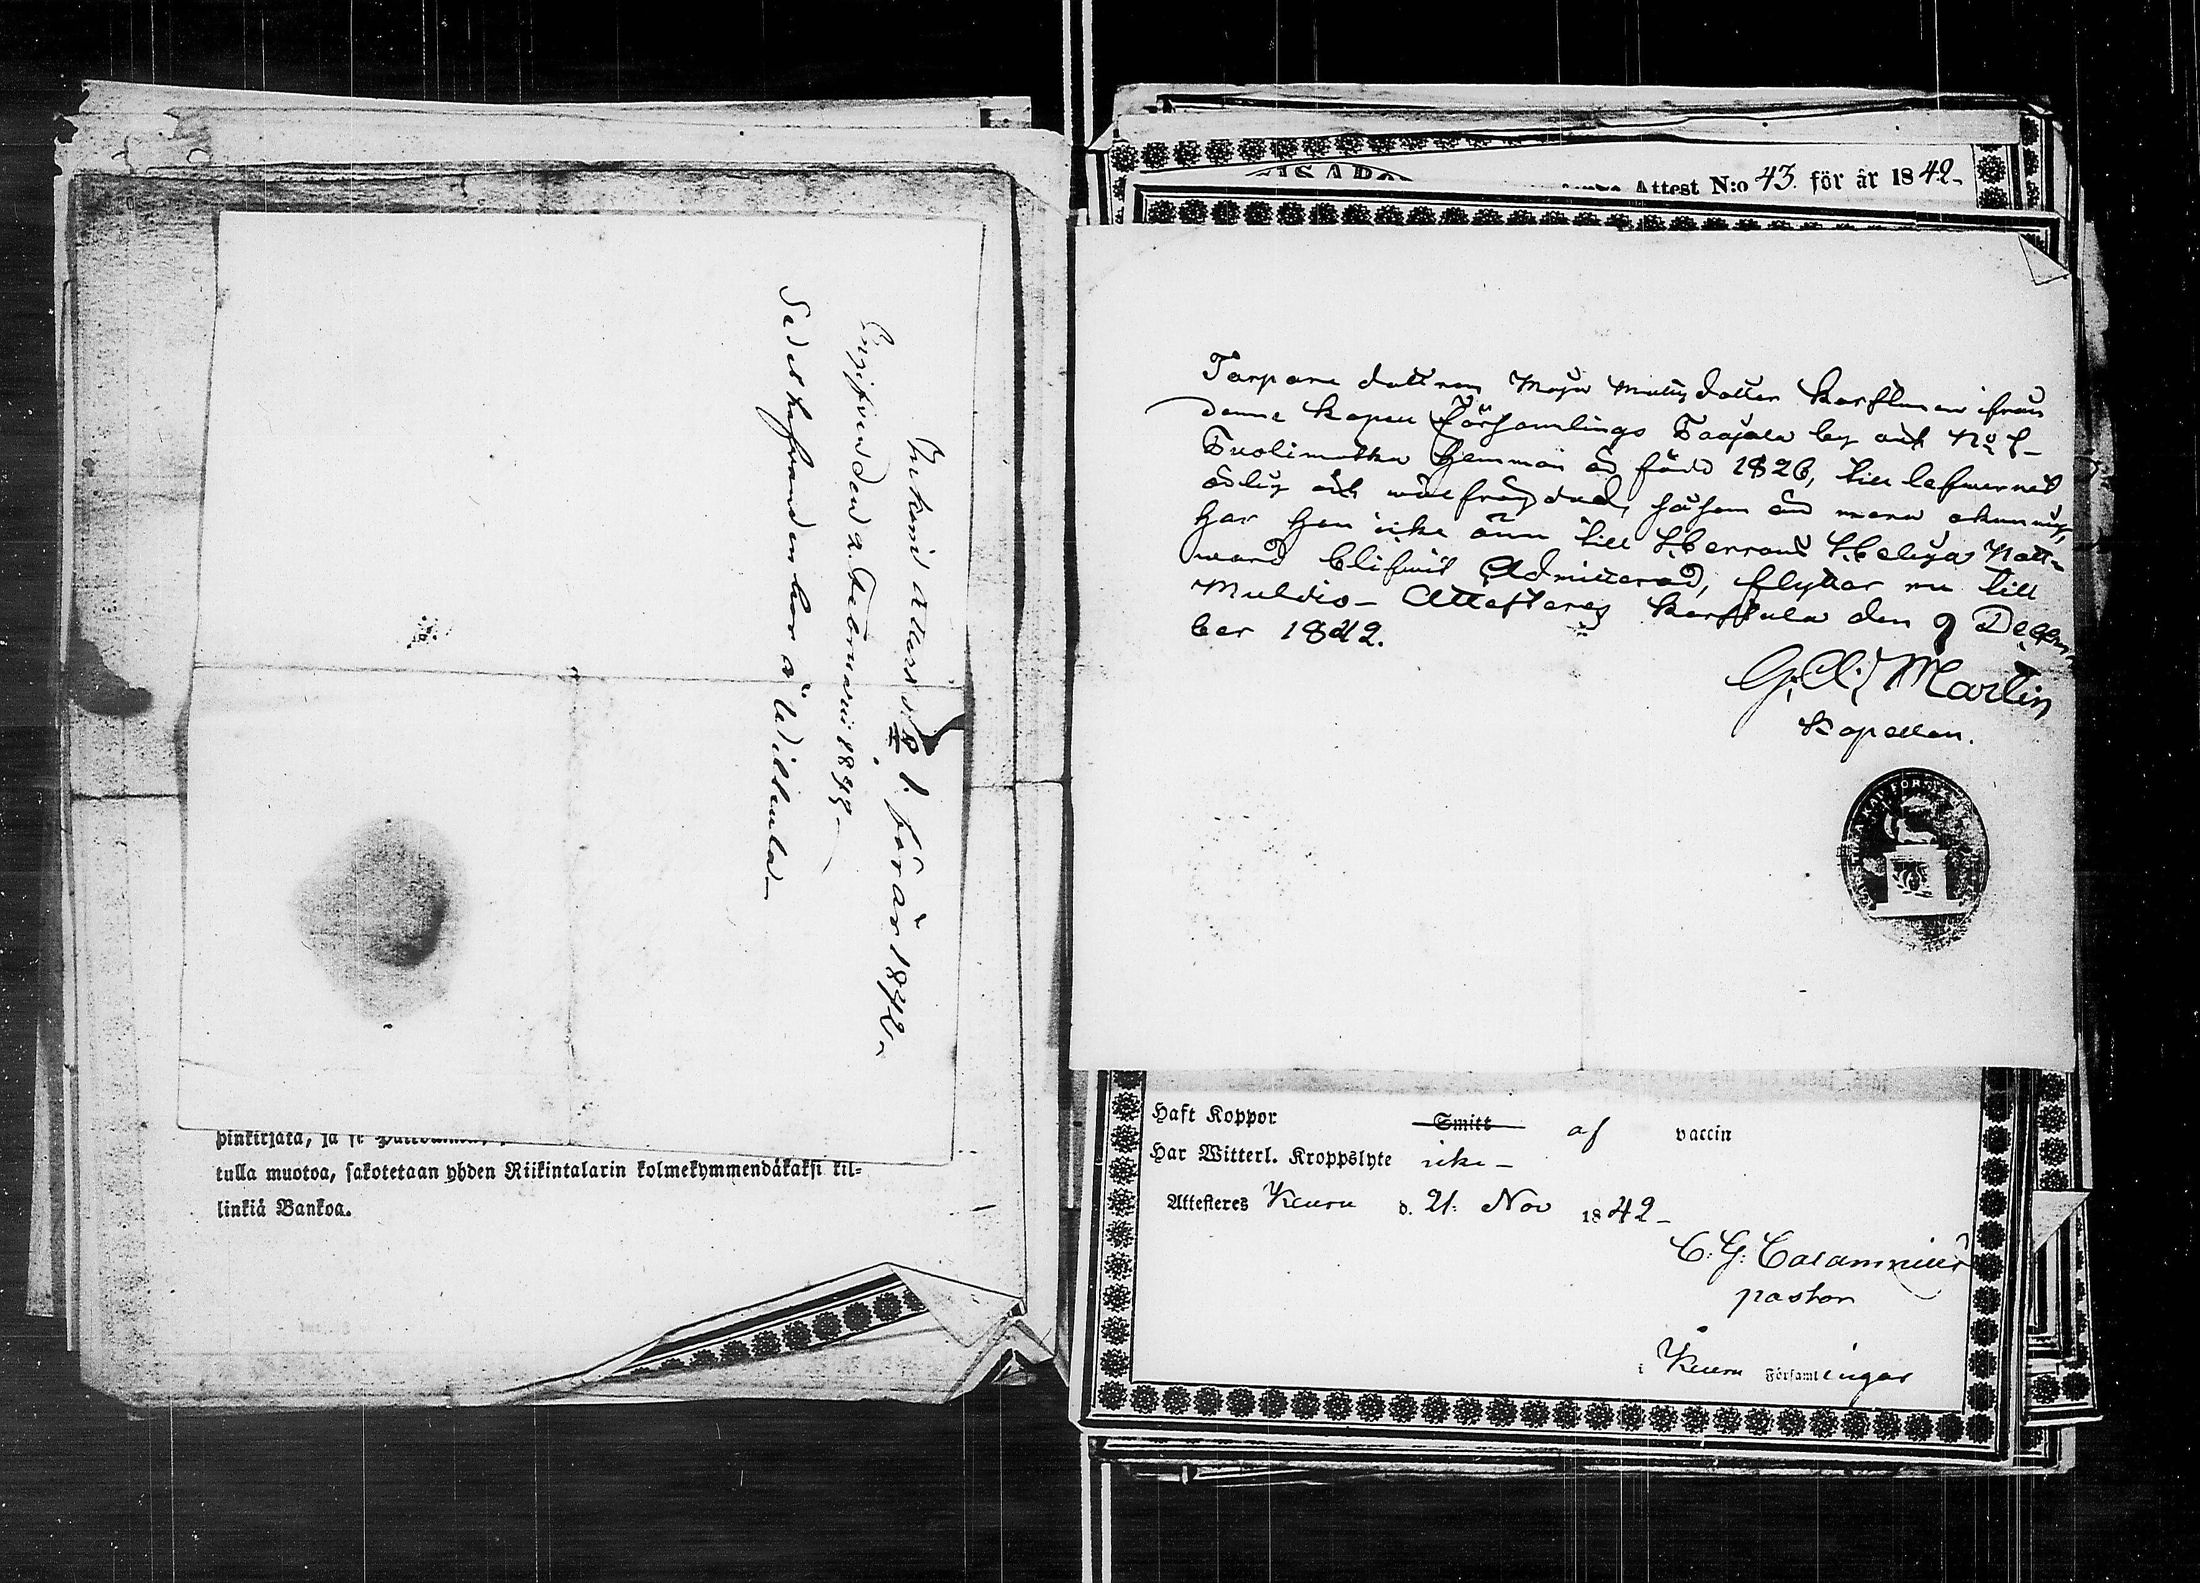 Inkomne Attest № 1. för år 1842
Uppgifven den 2. Februarii 1843
Sedelhafvanden bor i Wilkula
pinkirjata, ja se
tulla muotoa, sakotetaan yhden Riikintalarin kolmekymmendäkaksi kil-
linkiä Bankoa.
Attest N:o 43. för år 1842
Torpare dottren Maja Matts dotter Karstuen ifrån
denne Kapell Församlings by och No
Tuolimatka hemman är född 1826, till lefwernet
ärlig och wälfrägdad, såsom
har hon icke ännu till Herrans Heliga Natt-
ward blifwit Admitterad, flyttar nu till
Multio- Attesteres Karstula den 9 Decem
ber 1842.
Martin
Kapellan.
Haft Koppor Smitt af vaccin
Har Witterl. Kroppslyte icke
Attesteres Keuru d. 21. Nov 1842
C. G. Calamnius
pastor
i Keuru Församlingar